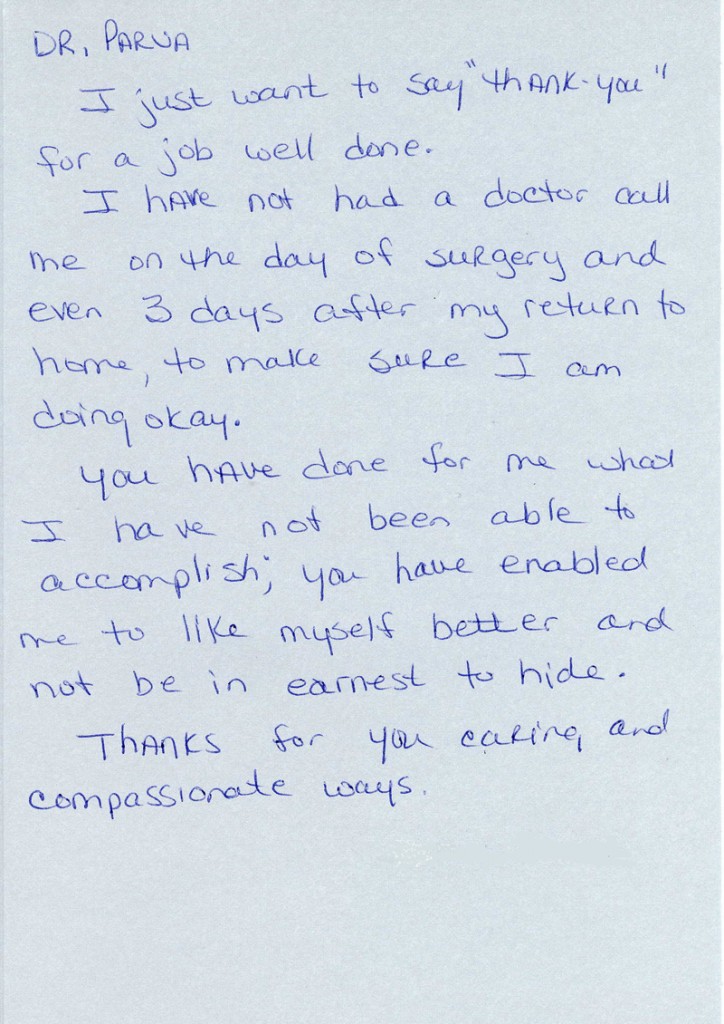 DR. PARVA
I just want to say "thANK-you"
for a job well done.
I hAve not had a doctor call
me on the day of suRgery and
even 3 days after my retuRn to
home, to make suRe I am
doing okay.
you hAVe done for me what
I have not been able to
accomplish; you have enabled
me to like myself better and
not be in earnest to hide.
ThANKS for you caRing and
compassionate ways.